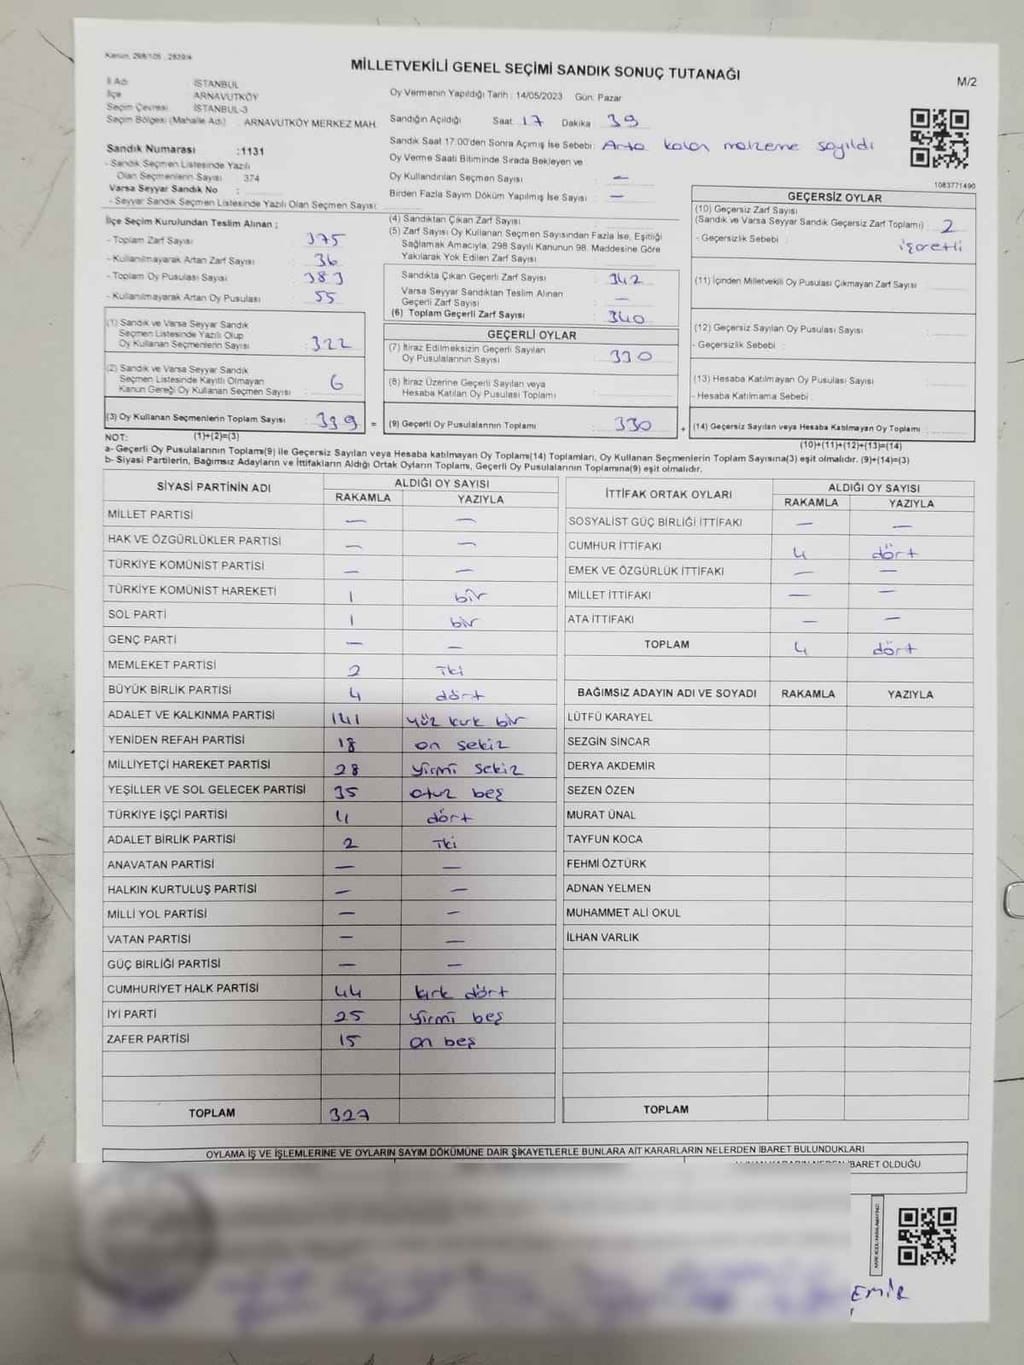 Kanun, 298/105 , 2839/4
MİLLETVEKİLİ GENEL SEÇİMİ SANDIK SONUÇ TUTANAĞI
M/2
İl Adı İSTANBUL
İlçe ARNAVUTKÖY
Seçim Çevresi İSTANBUL-3
Seçim Bölgesi (Mahalle Adı) ARNAVUTKÖY MERKEZ MAH
Oy Vermenin Yapıldığı Tarih : 14/05/2023 Gün: Pazar
Sandığın Açıldığı Saat 17 Dakika 39
Sandık Saat 17:00'den Sonra Açılmış İse Sebebi : Arta kalan malzeme sayıldı
Oy Verme Saati Bitiminde Sırada Bekleyen ve
Oy Kullandırılan Seçmen Sayısı : —
Birden Fazla Sayım Döküm Yapılmış İse Sayısı : —
1083771490
Sandık Numarası :1131
- Sandık Seçmen Listesinde Yazılı
Olan Seçmenlerin Sayısı 374
Varsa Seyyar Sandık No :
- Seyyar Sandık Seçmen Listesinde Yazılı Olan Seçmen Sayısı:
İlçe Seçim Kurulundan Teslim Alınan :
- Toplam Zarf Sayısı 375
- Kullanılmayarak Artan Zarf Sayısı 36
- Toplam Oy Pusulası Sayısı 383
- Kullanılmayarak Artan Oy Pusulası 55
(1) Sandık ve Varsa Seyyar Sandık
Seçmen Listesinde Yazılı Olup
Oy Kullanan Seçmenlerin Sayısı 322
(2) Sandık ve Varsa Seyyar Sandık
Seçmen Listesinde Kayıtlı Olmayan
Kanun Gereği Oy Kullanan Seçmen Sayısı 6
(3) Oy Kullanan Seçmenlerin Toplam Sayısı 339 =
(1)+(2)=(3)
(4) Sandıktan Çıkan Zarf Sayısı
(5) Zarf Sayısı Oy Kullanan Seçmen Sayısından Fazla İse, Eşitliği
Sağlamak Amacıyla, 298 Sayılı Kanunun 98. Maddesine Göre
Yakılarak Yok Edilen Zarf Sayısı
Sandıkta Çıkan Geçerli Zarf Sayısı 342
Varsa Seyyar Sandıktan Teslim Alınan
Geçerli Zarf Sayısı —
(6) Toplam Geçerli Zarf Sayısı 340
GEÇERLİ OYLAR
(7) İtiraz Edilmeksizin Geçerli Sayılan
Oy Pusulalarının Sayısı 330
(8) İtiraz Üzerine Geçerli Sayılan veya
Hesaba Katılan Oy Pusulası Toplamı
(9) Geçerli Oy Pusulalarının Toplamı 330 +
GEÇERSİZ OYLAR
(10) Geçersiz Zarf Sayısı
(Sandık ve Varsa Seyyar Sandık Geçersiz Zarf Toplamı) 2
- Geçersizlik Sebebi : işaretli
(11) İçinden Milletvekili Oy Pusulası Çıkmayan Zarf Sayısı
(12) Geçersiz Sayılan Oy Pusulası Sayısı
- Geçersizlik Sebebi :
(13) Hesaba Katılmayan Oy Pusulası Sayısı
- Hesaba Katılmama Sebebi :
(14) Geçersiz Sayılan veya Hesaba Katılmayan Oy Toplamı
(10)+(11)+(12)+(13)=(14)
NOT:
a- Geçerli Oy Pusulalarının Toplamı(9) ile Geçersiz Sayılan veya Hesaba katılmayan Oy Toplamı(14) Toplamları, Oy Kullanan Seçmenlerin Toplam Sayısına(3) eşit olmalıdır. (9)+(14)=(3)
b- Siyasi Partilerin, Bağımsız Adayların ve İttifakların Aldığı Ortak Oyların Toplamı, Geçerli Oy Pusulalarının Toplamına(9) eşit olmalıdır.
SİYASİ PARTİNİN ADI ALDIĞI OY SAYISI
RAKAMLA YAZIYLA
MİLLET PARTİSİ — —
HAK VE ÖZGÜRLÜKLER PARTİSİ — —
TÜRKİYE KOMÜNİST PARTİSİ — —
TÜRKİYE KOMÜNİST HAREKETİ 1 bir
SOL PARTİ 1 bir
GENÇ PARTİ — —
MEMLEKET PARTİSİ 2 iki
BÜYÜK BİRLİK PARTİSİ 4 dört
ADALET VE KALKINMA PARTİSİ 141 yüz kırk bir
YENİDEN REFAH PARTİSİ 18 on sekiz
MİLLİYETÇİ HAREKET PARTİSİ 28 yirmi sekiz
YEŞİLLER VE SOL GELECEK PARTİSİ 35 otuz beş
TÜRKİYE İŞÇİ PARTİSİ 4 dört
ADALET BİRLİK PARTİSİ 2 iki
ANAVATAN PARTİSİ — —
HALKIN KURTULUŞ PARTİSİ — —
MİLLİ YOL PARTİSİ — —
VATAN PARTİSİ — —
GÜÇ BİRLİĞİ PARTİSİ — —
CUMHURİYET HALK PARTİSİ 44 kırk dört
İYİ PARTİ 25 yirmi beş
ZAFER PARTİSİ 15 on beş
TOPLAM 327
İTTİFAK ORTAK OYLARI ALDIĞI OY SAYISI
RAKAMLA YAZIYLA
SOSYALİST GÜÇ BİRLİĞİ İTTİFAKI — —
CUMHUR İTTİFAKI 4 dört
EMEK VE ÖZGÜRLÜK İTTİFAKI — —
MİLLET İTTİFAKI — —
ATA İTTİFAKI — —
TOPLAM 4 dört
BAĞIMSIZ ADAYIN ADI VE SOYADI RAKAMLA YAZIYLA
LÜTFÜ KARAYEL
SEZGİN SİNCAR
DERYA AKDEMİR
SEZEN ÖZEN
MURAT ÜNAL
TAYFUN KOCA
FEHMİ ÖZTÜRK
ADNAN YELMEN
MUHAMMET ALİ OKUL
İLHAN VARLIK
TOPLAM
OYLAMA İŞ VE İŞLEMLERİNE VE OYLARIN SAYIM DÖKÜMÜNE DAİR ŞİKAYETLERLE BUNLARA AİT KARARLARIN NELERDEN İBARET BULUNDUKLARI
İBARET OLDUĞU
EMİR